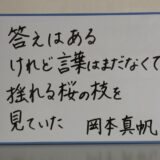 答えはある
けれど言葉はまだなくて
揺れる桜の枝を
見ていた 岡本真帆